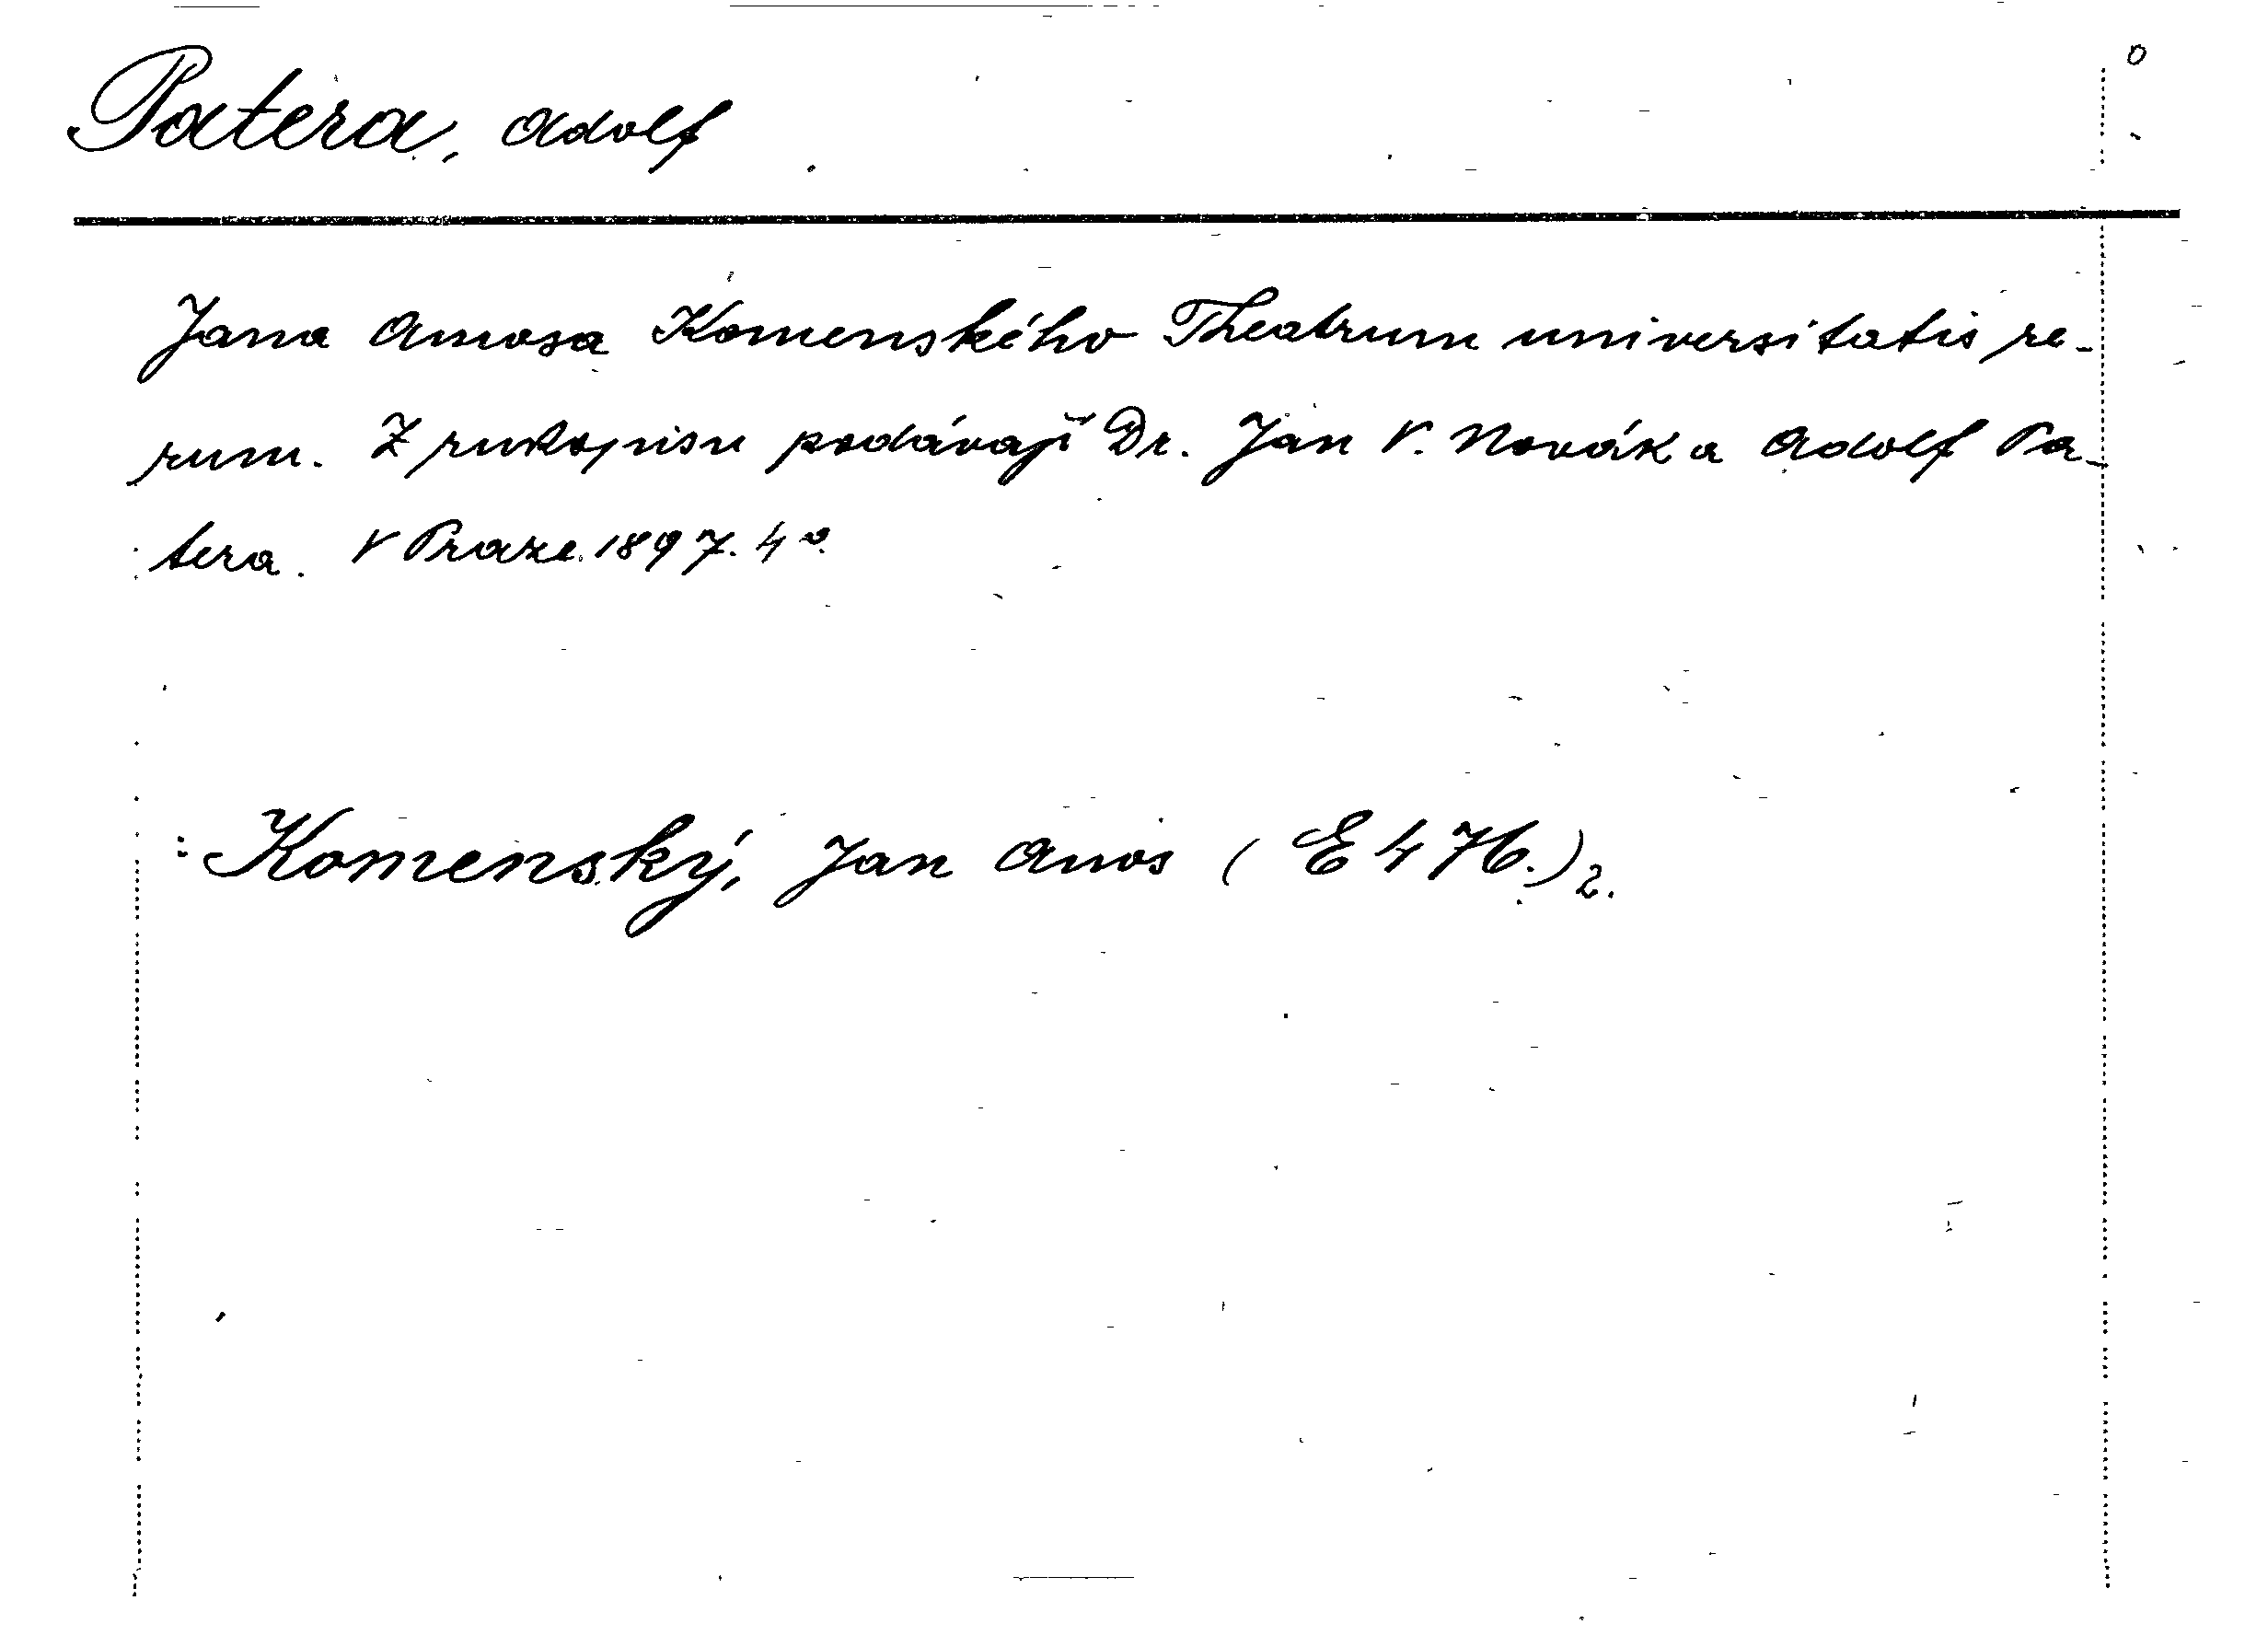 Patera, Adolf
Jana Amosa Komenského Theatrum universitatis re-
rum. Z rukopisu podávají Dr. Jan V. Novák a Adolf Pa-
tera. V Praze. 1897. 4°.
Komenský, Jan Amos (E 476.) 2.